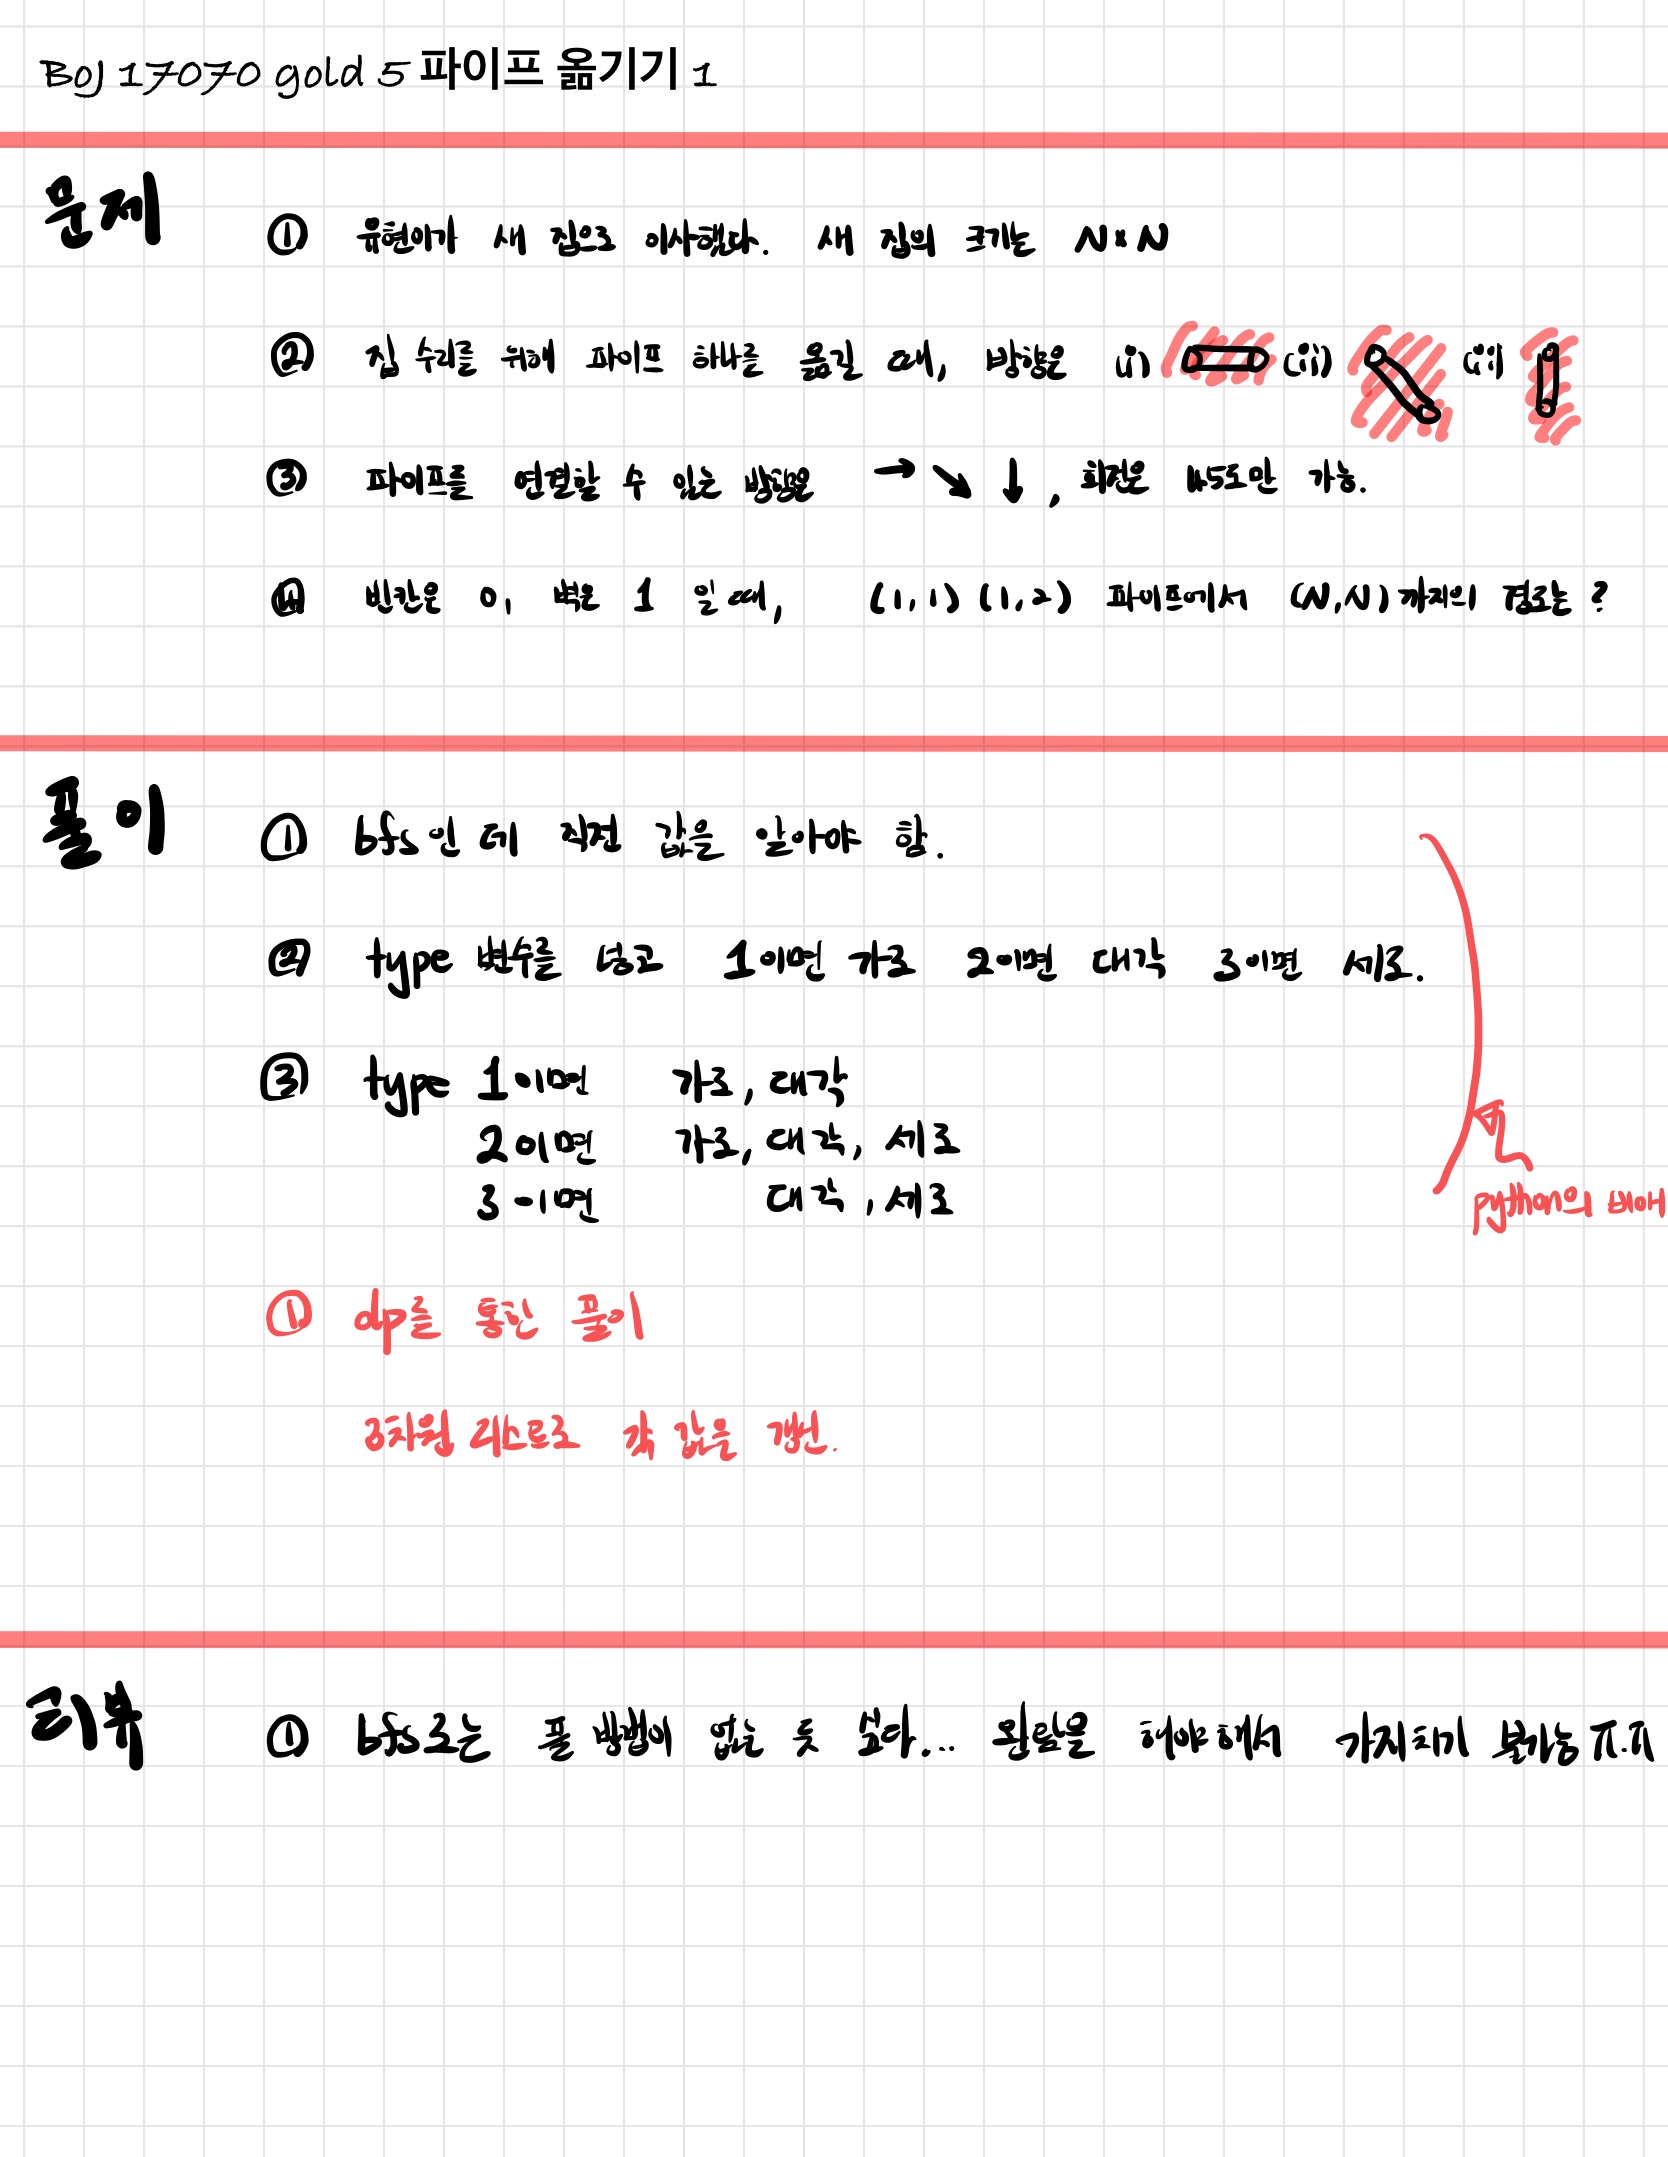 BOJ 17070 gold 5 파이프 옮기기 1
문제
① 유현이가 새 집으로 이사했다. 새 집의 크기는 N×N
② 집 수리를 위해 파이프 하나를 옮길 때, 방향은 (i) (ii) (iii)
③ 파이프를 연결할 수 있는 방향은 → ↘ ↓, 회전은 45도만 가능.
④ 빈칸은 0, 벽은 1 일 때, (1,1) (1,2) 파이프에서 (N,N)까지의 경로는?
풀이
① bfs인데 직전 값을 알아야 함.
② type 변수를 넣고 1이면 가로 2이면 대각 3이면 세로.
③ type 1이면 가로, 대각
2이면 가로, 대각, 세로
3이면 대각, 세로
python의 비애
① dp를 통한 풀이
3차원 리스트로 각 값을 갱신.
리뷰
① bfs로는 풀 방법이 없는 듯 싶다... 완탐을 해야해서 가지치기 불가능 ㅠ.ㅠ